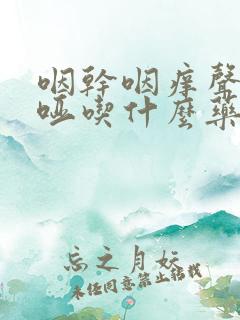 咽幹咽痒聲
哑喫什麽藥
忘之月妖
未经同意禁止转载